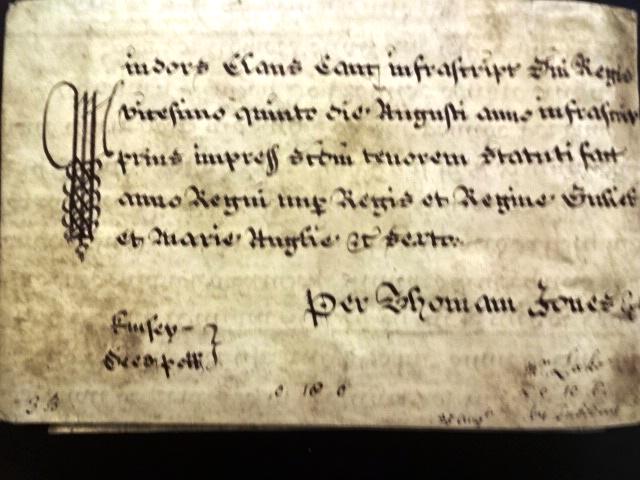 in dors Claus Canc infrascript Dni Regis
vicesimo quinto die Augusti anno infrascrip
prius impress scdm tenorem Statuti fact
anno Regni nup Regis et Regine Guliel
et Marie Anglie &c Sexto
Per Thomam Jones
Kinsey
Deed poll
0 10 0